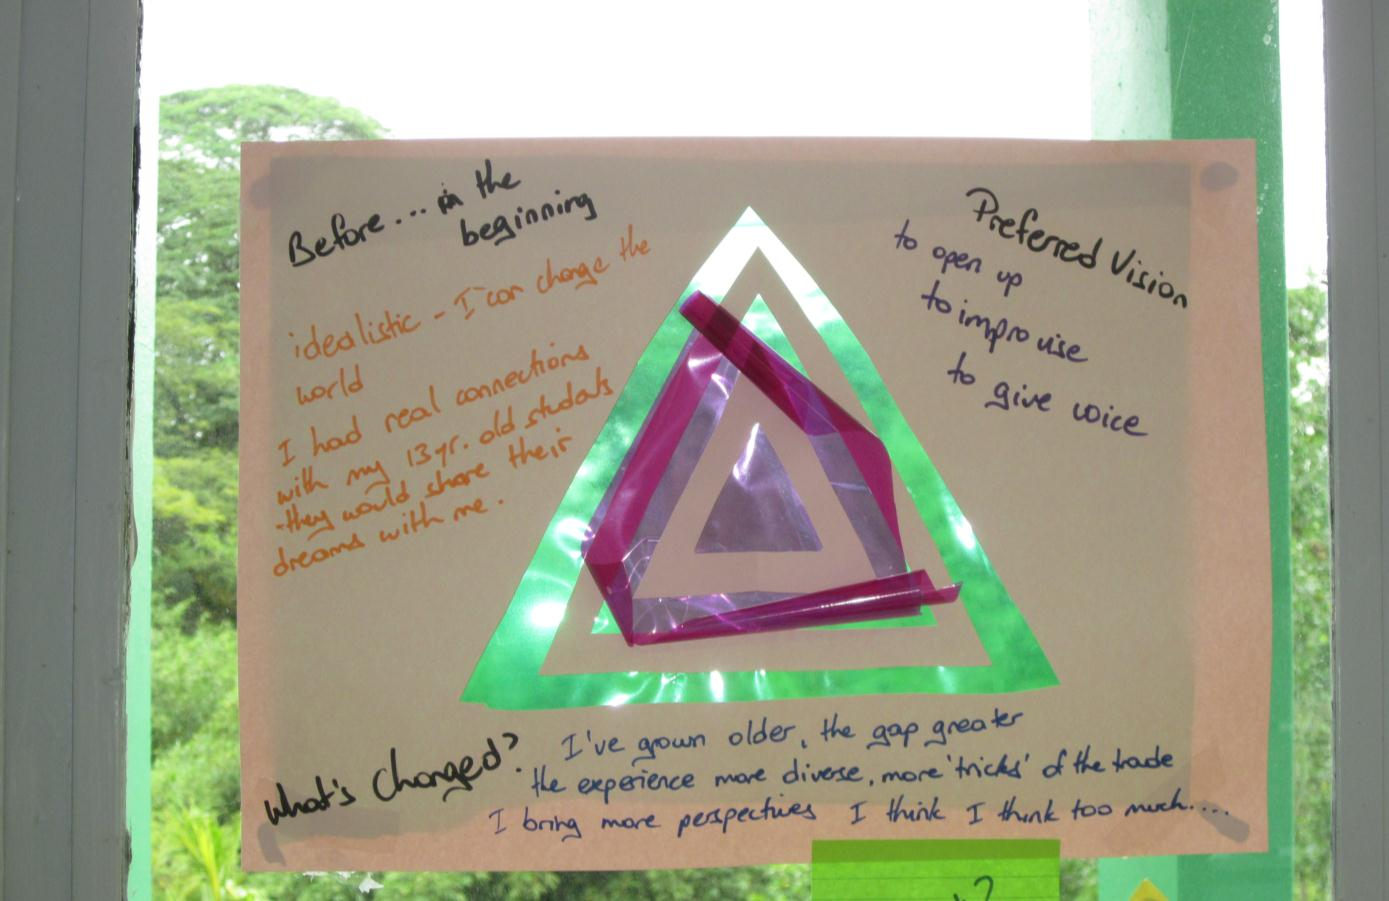 Before... in the
beginning
idealistic - I can change the
world
I had real connections
with my 13yr. old students
-they would share their
dreams with me.
Preferred Vision
to open up
to improvise
to give voice
What's changed?
I've grown older, the gap greater
the experience more diverse, more 'tricks' of the trade
I bring more perspectives I think I think too much....